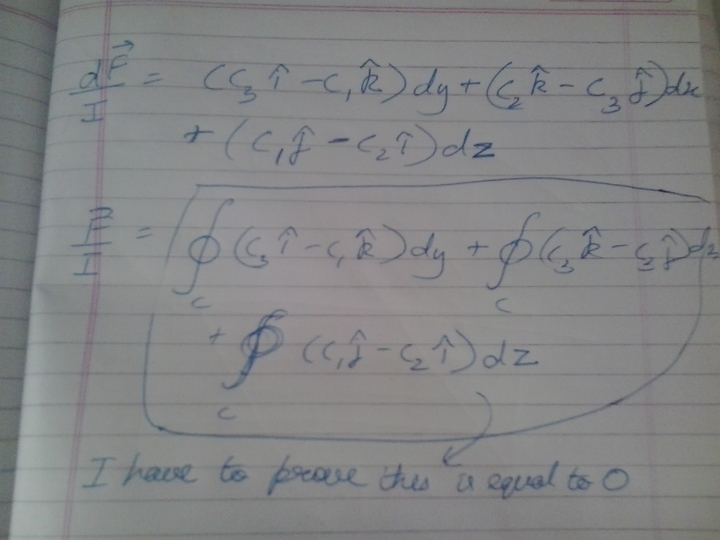 dF⃗/I = (c₃ î − c₁ k̂) dy + (c₂ k̂ − c₃ ĵ) dx
+ (c₁ ĵ − c₂ î) dz
F⃗/I = ∮_C (c₃ î − c₁ k̂) dy + ∮_C (c₃ k̂ − c₃ ĵ) dx
+ ∮_C (c₁ ĵ − c₂ î) dz
I have to prove this is equal to 0